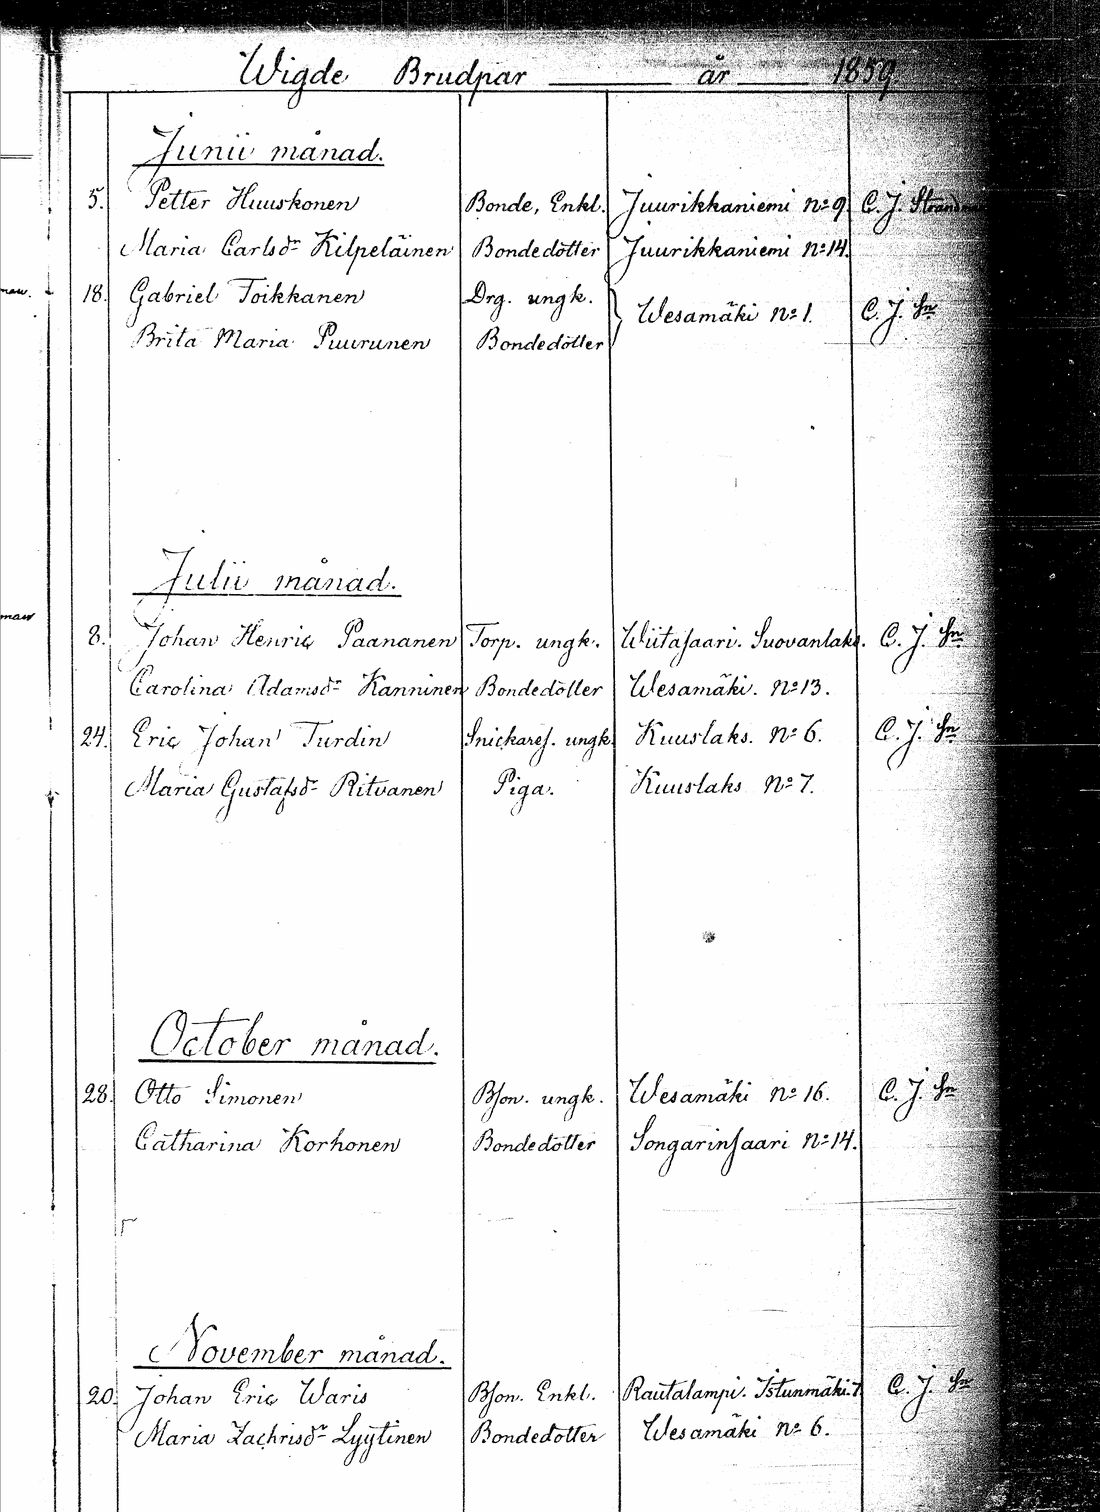 Wigde Brudpar år 1859
Junii månad.
5. Petter Huuskonen Bonde, Enkl. Juurikkaniemi No 9 C. J. Strandman
Maria Carlsdr Kilpeläinen Bondedotter Juurikkaniemi No 14.
18. Gabriel Toikkanen Drg. ungk. Wesamäki No 1. C. J. Sn
Brita Maria Puurunen Bondedotter
Julii månad.
8. Johan Henric Paananen Torp. ungk. Wiitasaari. Suovanlaks. C. J. Sn
Carolina Adamsdr Kanninen Bondedotter Wesamäki. No 13.
24. Eric Johan Turdin Snickares. ungk. Kuuslaks. No 6. C. J. Sn
Maria Gustafsdr Ritvanen Piga. Kuuslaks No 7.
October månad.
28. Otto Simonen Bson. ungk. Wesamäki No 16. C. J. Sn
Catharina Korhonen Bondedotter Songarinsaari No 14.
November månad.
20. Johan Eric Waris Bson. Enkl. Rautalampi. Istunmäki. 7. C. J. Sn
Maria Zachrisdr Lyytinen Bondedotter Wesamäki No 6.